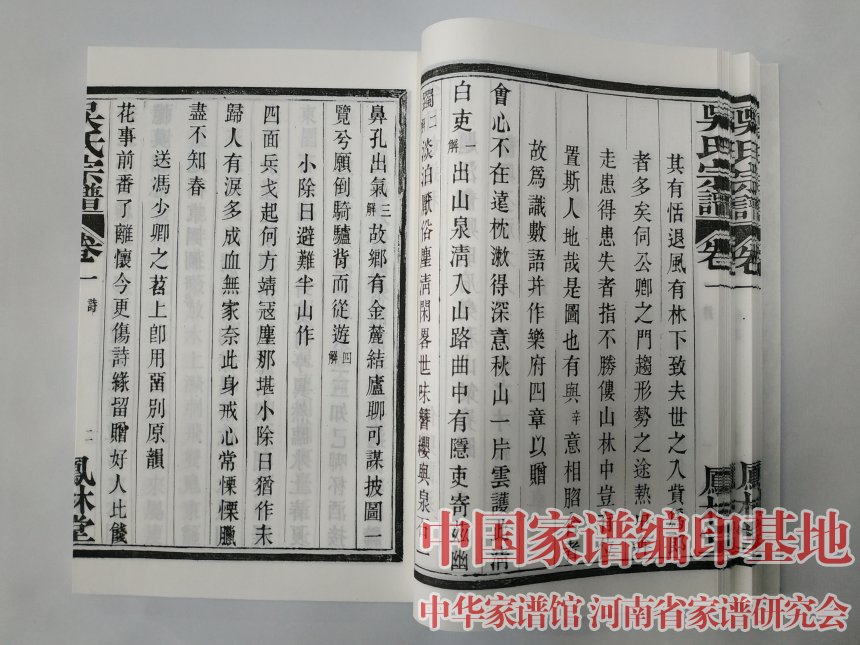 吳氏宗譜 卷一
鳳林堂
其有恬退風有林下致夫世之入貲為郎
者多矣伺公卿之門趨形勢之途熱中
走患得患失者指不勝僂山林中豈
置斯人地哉是圖也有與辛意相脗者
故爲識數語并作樂府四章以贈
會心不在遠枕漱得深意秋山一片雲護此清
白吏 一解 出山泉清入山路曲中有隱吏寄幽
獨 二解 淡泊厭俗塵清閑畧世味簪纓與泉石
鼻孔出氣 三解 故鄉有金麓結廬聊可謀披圖一
覽兮願倒騎驢背而從遊 四解
小除日避難半山作
四面兵戈起何方靖寇塵那堪小除日猶作未
歸人有淚多成血無家奈此身戒心常慄慄臘
盡不知春
送馮少卿之苕上卽用罶別原韻
花事前番了離懷今更傷詩緣留贈好人比餞
吳氏宗譜 卷一 詩 二 鳳林堂
中国家谱编印基地
中华家谱馆 河南省家谱研究会